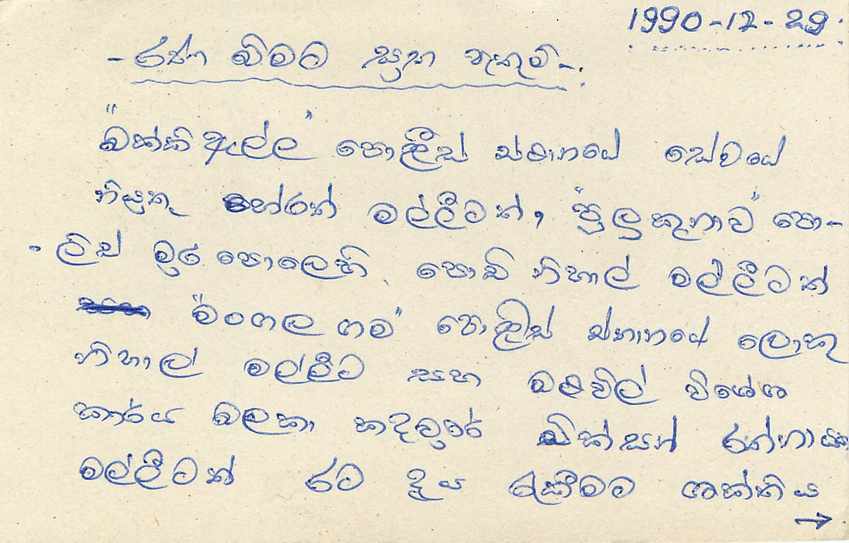 1990-12-29.
- රණ බිමට සුභ පැතුම් -.
"බක්කිඇල්ල" පොලීස් ස්ථානයේ සේවයේ
නියුතු හේරත් මල්ලීටත්, "පුලුකුනාව" පො-
- ලිස් මුර පොලෙහි පොඩි නිහාල් මල්ලීටත්
"මංගලගම" පොළිස් ස්ථානයේ ලොකු
නිහාල් මල්ලීට සහ මළවිල් විශේශ
කාර්ය බලකා කඳවුරේ ඩික්සන් රත්නායක
මල්ලීටත් රට දැය රැකීමට ශක්තිය
→